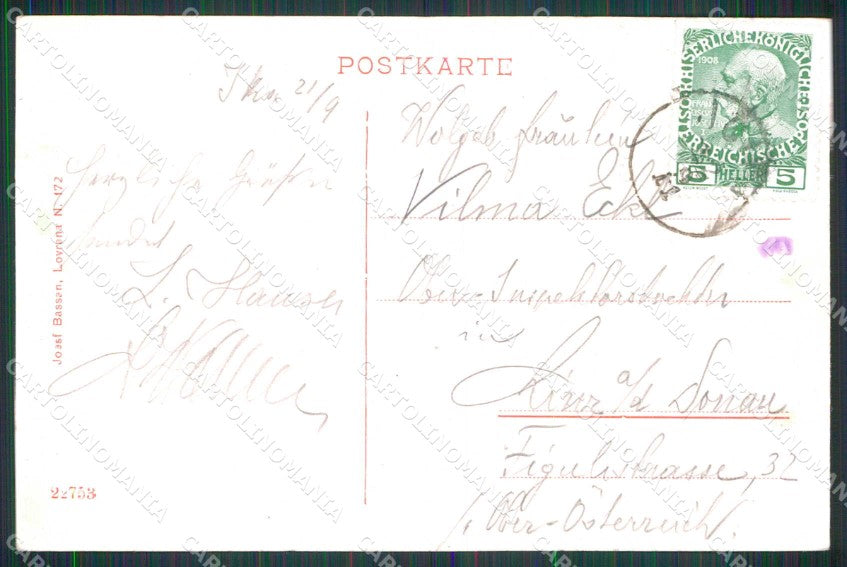 POSTKARTE
21/9
Herzliche Grüßen
sendet
L. Hauser
Wolgeb. Fräulein
Vilma Eckl
Ober-Inspektorstochter
in
Linz a/d Donau
Figulistrasse, 32
Ober-Österreich.
Josef Bassan, Lovrana N. 172
22753
KAISERLICHEKÖNIGLICHE
ÖSTERREICHISCHE
1908
5 HELLER 5
CARTOLINOMANIA